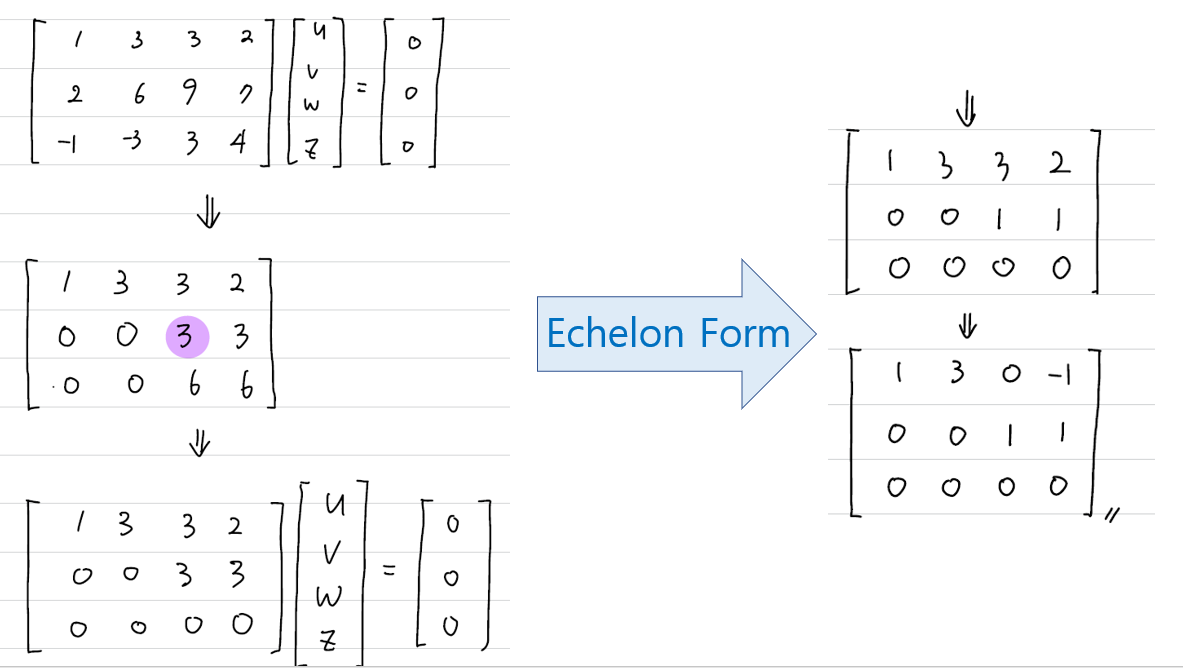 1 3 3 2 u = 0
2 6 9 7 v 0
-1 -3 3 4 w 0
z
⇓
1 3 3 2
0 0 3 3
0 0 6 6
⇓
1 3 3 2 u 0
0 0 3 3 v = 0
0 0 0 0 w 0
z
Echelon Form
⇓
1 3 3 2
0 0 1 1
0 0 0 0
⇓
1 3 0 -1
0 0 1 1
0 0 0 0 //